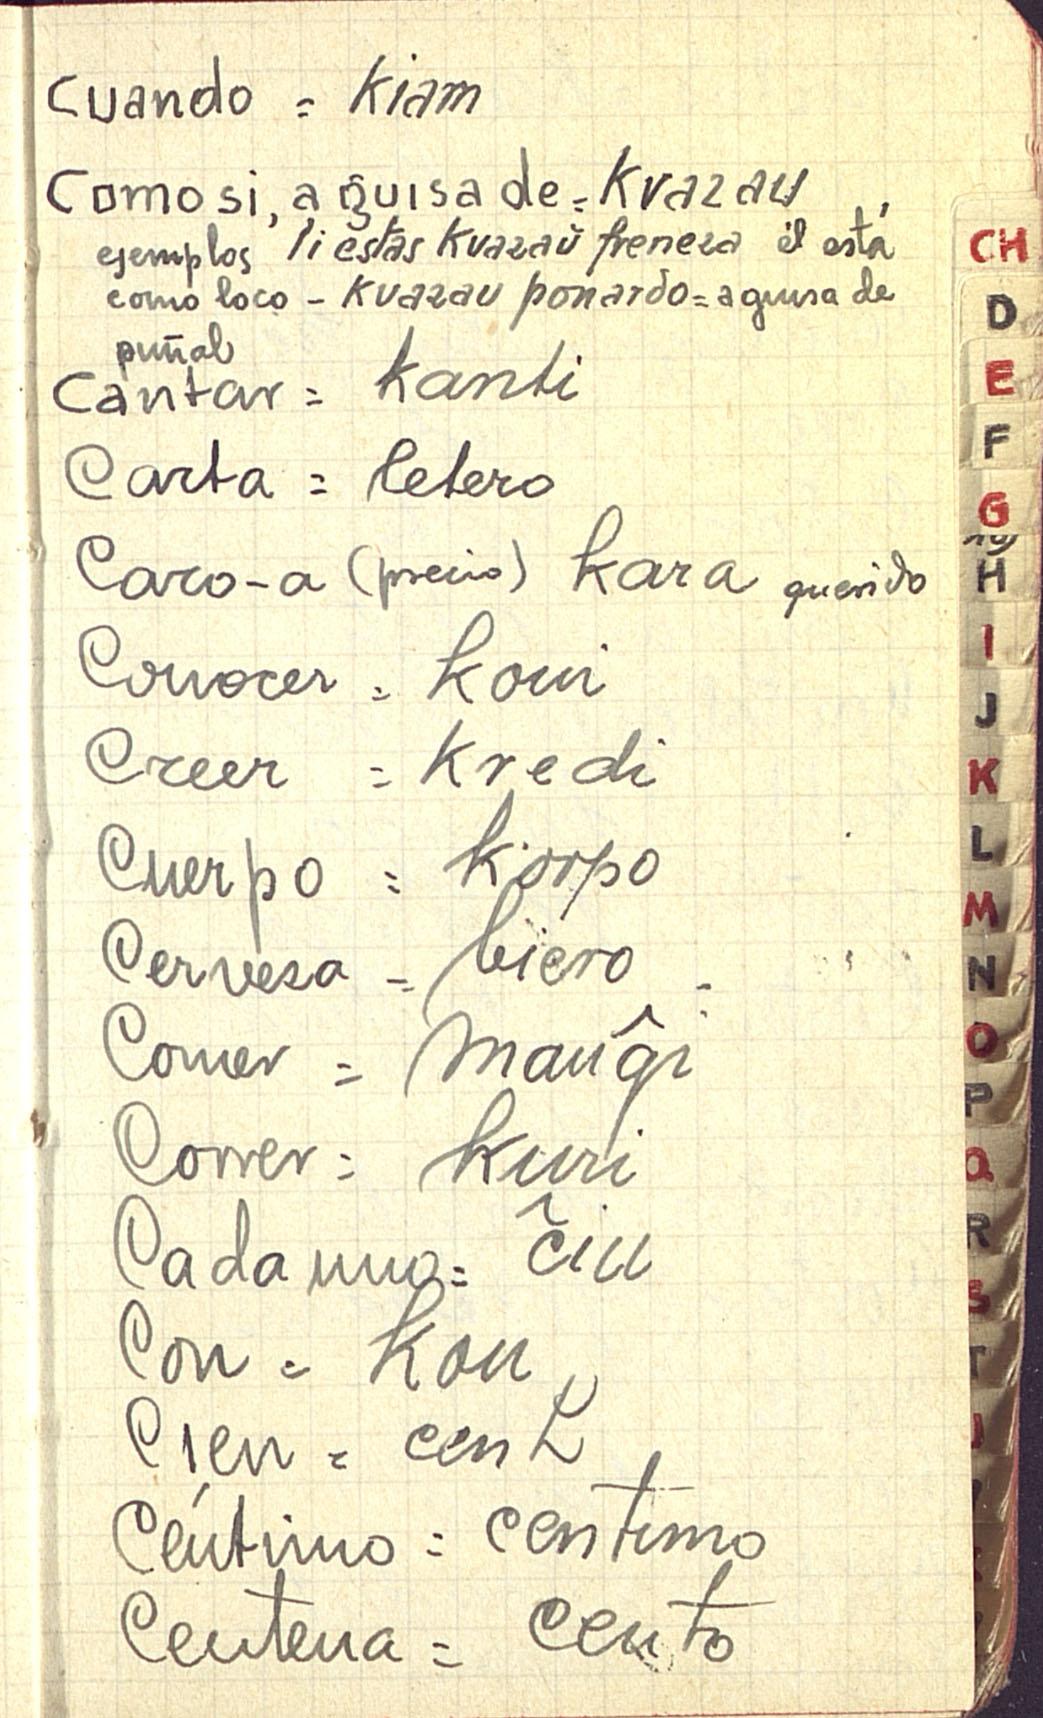 Cuando = kiam
Como si, a guisa de = Kvazau
ejemplos li estas kvazaŭ freneza él está
como loco - Kvazau ponardo = a guisa de
puñal
Cantar = kanti
Carta = letero
Caro-a (precio) kara querido
Conocer = koni
Creer = kredi
Cuerpo = korpo
Cervesa = biero
Comer = manĝi
Correr = kuri
Cada uno = ĉiu
Con = kon
Cien = cent
Céntimo = centimo
Centena = cento
CH
D
E
F
G
H
I
J
K
L
M
N
O
P
Q
R
S
T